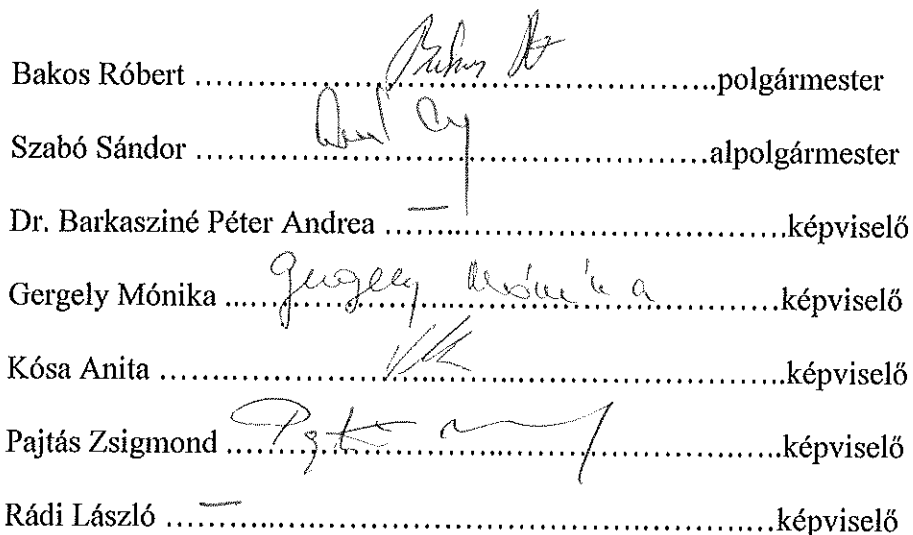 Bakos Róbert ……………………………………polgármester
Szabó Sándor ……………………………………alpolgármester
Dr. Barkasziné Péter Andrea ……………………………képviselő
Gergely Mónika ...Gergely Mónika...képviselő
Kósa Anita ……………………………………………képviselő
Pajtás Zsigmond ………………………………………képviselő
Rádi László …–………………………………………képviselő